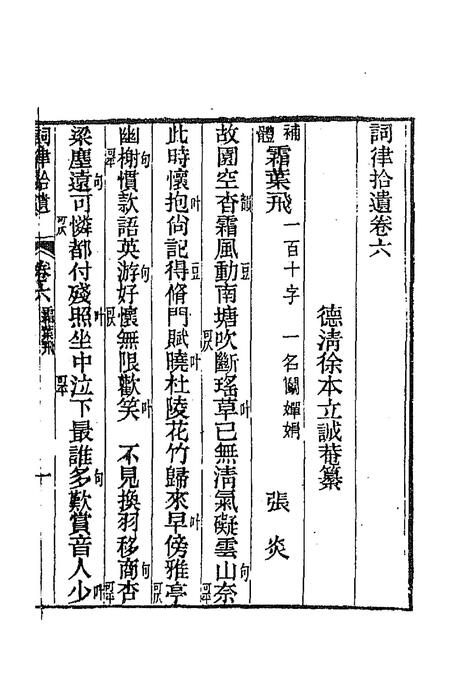 詞律拾遺卷六
德淸徐本立誠菴纂
補體 霜葉飛 一百十字 一名鬭嬋娟 張炎
故園空杳韻霜風動豆南塘吹斷可仄瑤草已無淸氣礙雲山句奈可平
此時懷抱叶尙記得豆脩門賦曉叶杜陵花竹歸來早叶傍雅亭可仄
幽可平榭句慣款語英游句好懷無限歡笑叶 不見換羽移商句杏可平
梁塵遠句可可仄憐都付殘照叶坐中泣可平下最誰多句歎賞音人少叶
詞律拾遺 卷六 霜葉飛 一